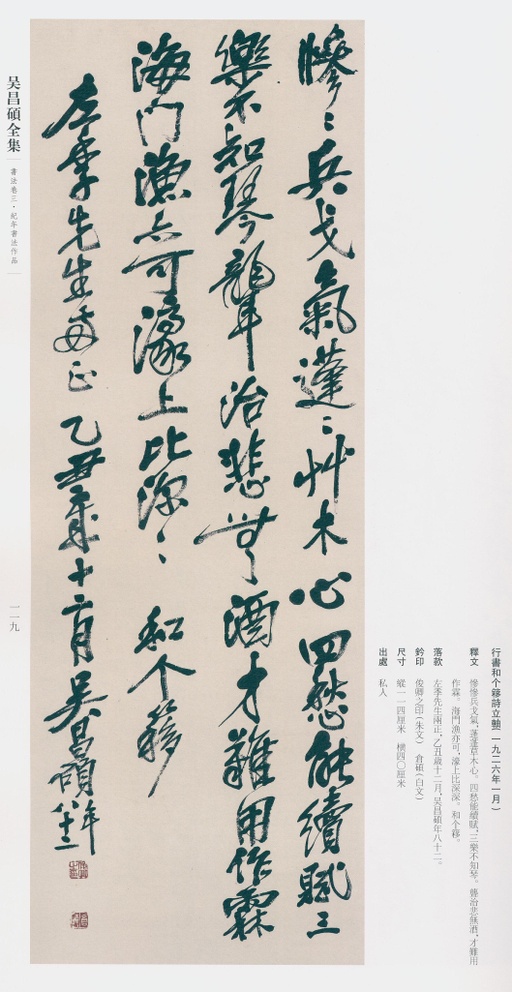 慘〻兵戈氣蓬〻艸木心四愁能續賦三
樂不知琴聾治悲無酒才難用作霖
海門漁亦可濠上比深〻 和个簃
左季先生兩正 乙丑歲十二月吳昌碩年八十二
行書和个簃詩立軸(一九二六年一月)
釋文 慘慘兵戈氣,蓬蓬草木心。四愁能續賦,三樂不知琴。聾治悲無酒,才難用
作霖。海門漁亦可,濠上比深深。和个簃。
落款 左季先生兩正,乙丑歲十二月,吳昌碩年八十二。
鈐印 俊卿之印(朱文) 倉碩(白文)
尺寸 縱一一四厘米 橫四〇厘米
出處 私人
吴昌碩全集
書法卷三·紀年書法作品
一一九